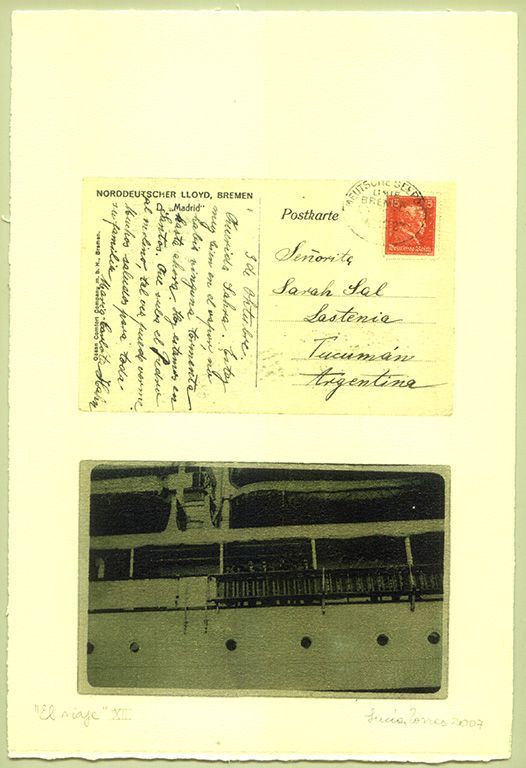 NORDDEUTSCHER LLOYD, BREMEN
D. „Madrid"
3 de Octubre.
Querida Sahra. Estoy
muy bien en el vapor, no
hubo ninguna tormenta
hasta ahora. Hoy estamos en
Santos. Que suba el Pedro
al molino, tal vez puede verme
Muchos saludos para toda
su familia
Maria Carlota
Postkarte
DEUTSCHE SEEPOST
LINIE
BREMEN
Deutsches Reich
Señorita
Sarah Sal
Lastenia
Tucumán
Argentina
"El viaje" XII
Lucía Torres 2007